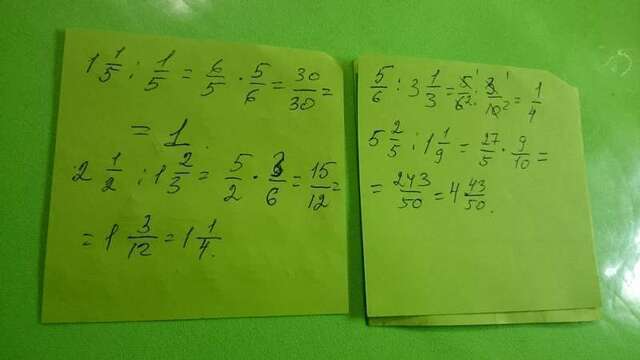 1 1/5 : 1/5 = 6/5 · 5/6 = 30/30 =
= 1
2 1/2 : 1 2/3 = 5/2 · 3/6 = 15/12 =
= 1 3/12 = 1 1/4.
5/6 : 3 1/3 = 5 1/6 2 · 3 1/10 2 = 1/4
5 2/5 : 1 1/9 = 27/5 · 9/10 =
= 243/50 = 4 43/50.